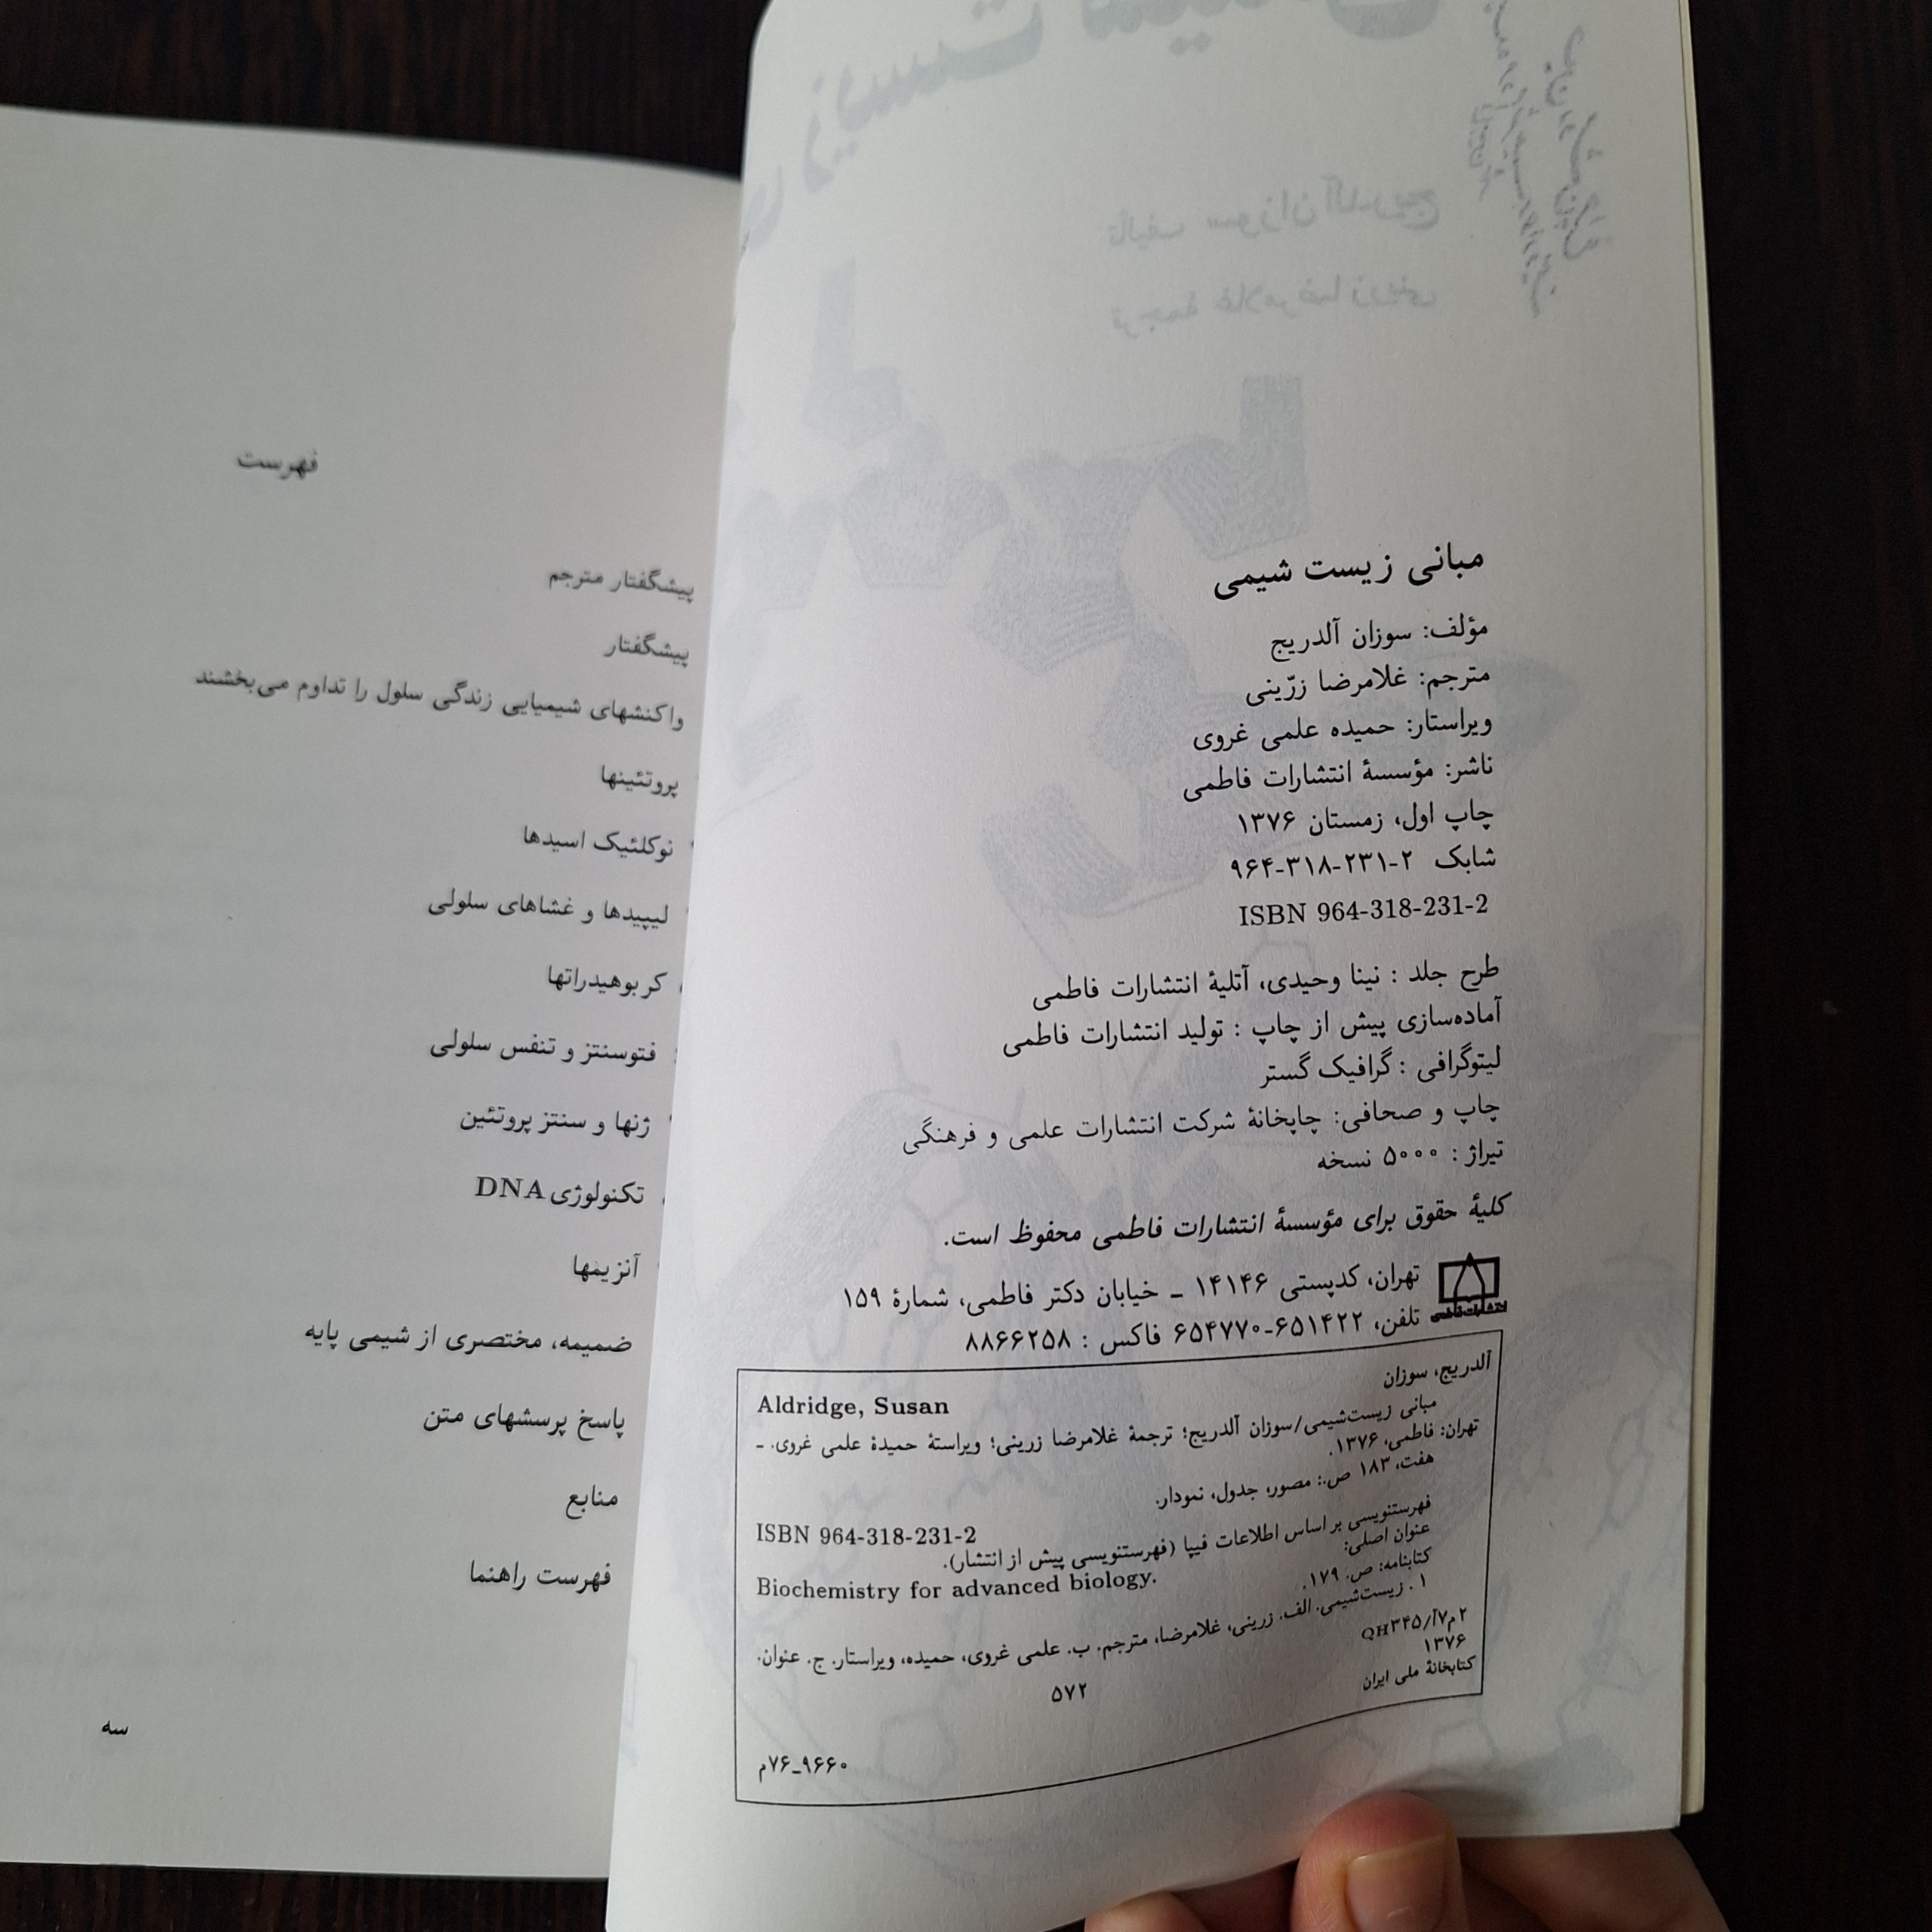 مبانی زیست شیمی
مؤلف: سوزان آلدریج
مترجم: غلامرضا زرّینی
ویراستار: حمیده علمی غروی
ناشر: مؤسسهٔ انتشارات فاطمی
چاپ اول، زمستان ۱۳۷۶
شابک ۲-۲۳۱-۳۱۸-۹۶۴
ISBN 964-318-231-2
طرح جلد : نینا وحیدی، آتلیهٔ انتشارات فاطمی
آماده‌سازی پیش از چاپ : تولید انتشارات فاطمی
لیتوگرافی : گرافیک گستر
چاپ و صحافی: چاپخانهٔ شرکت انتشارات علمی و فرهنگی
تیراژ : ۵۰۰۰ نسخه
کلیهٔ حقوق برای مؤسسهٔ انتشارات فاطمی محفوظ است.
انتشارات فاطمی
تهران، کدپستی ۱۴۱۴۶ ـ خیابان دکتر فاطمی، شمارهٔ ۱۵۹
تلفن، ۶۵۱۴۲۲-۶۵۴۷۷۰ فاکس : ۸۸۶۶۲۵۸
آلدریج، سوزان
Aldridge, Susan
مبانی زیست‌شیمی/سوزان آلدریج؛ ترجمهٔ غلامرضا زرینی؛ ویراستهٔ حمیدهٔ علمی غروی. ـ
تهران: فاطمی، ۱۳۷۶.
هفت، ۱۸۳ ص.: مصور، جدول، نمودار.
ISBN 964-318-231-2
فهرستنویسی بر اساس اطلاعات فیپا (فهرستنویسی پیش از انتشار).
عنوان اصلی: Biochemistry for advanced biology.
کتابنامه: ص. ۱۷۹.
۱. زیست‌شیمی. الف. زرینی، غلامرضا، مترجم. ب. علمی غروی، حمیده، ویراستار. ج. عنوان.
۲م۷آ/QH۳۴۵
۱۳۷۶
۵۷۲
کتابخانهٔ ملی ایران
۷۶ـ۹۶۶۰م
فهرست
پیشگفتار مترجم
پیشگفتار
واکنشهای شیمیایی زندگی سلول را تداوم می‌بخشند
پروتئینها
نوکلئیک اسیدها
لیپیدها و غشاهای سلولی
کربوهیدراتها
فتوسنتز و تنفس سلولی
ژنها و سنتز پروتئین
تکنولوژی DNA
آنزیمها
ضمیمه، مختصری از شیمی پایه
پاسخ پرسشهای متن
منابع
فهرست راهنما
سه